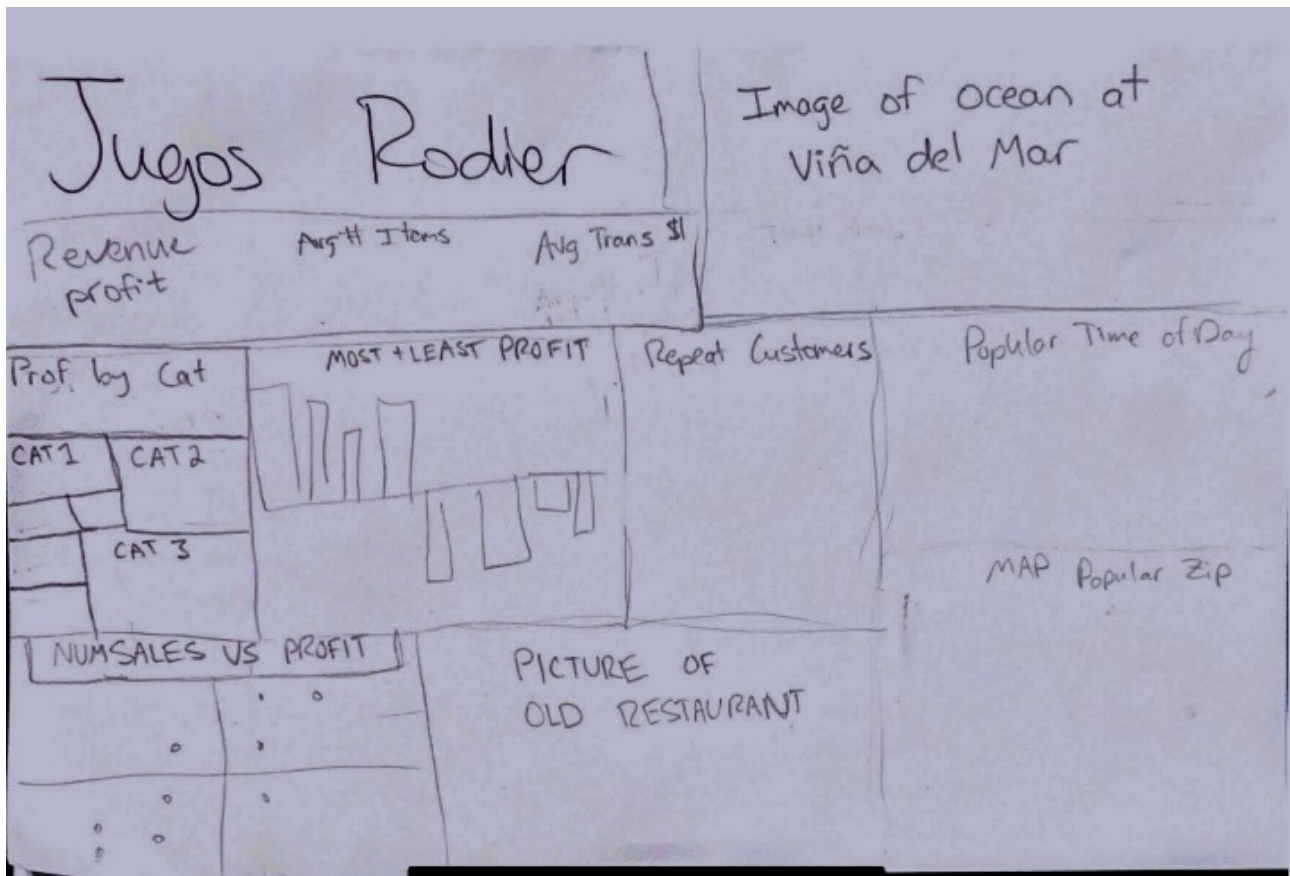 Jugos Rodier
Image of ocean at
Viña del Mar
Revenue
profit
Avg # Items
Avg Trans $
Prof. by Cat
CAT 1
CAT 2
CAT 3
MOST + LEAST PROFIT
Repeat Customers
Popular Time of Day
MAP Popular Zip
NUMSALES VS PROFIT
PICTURE OF
OLD RESTAURANT